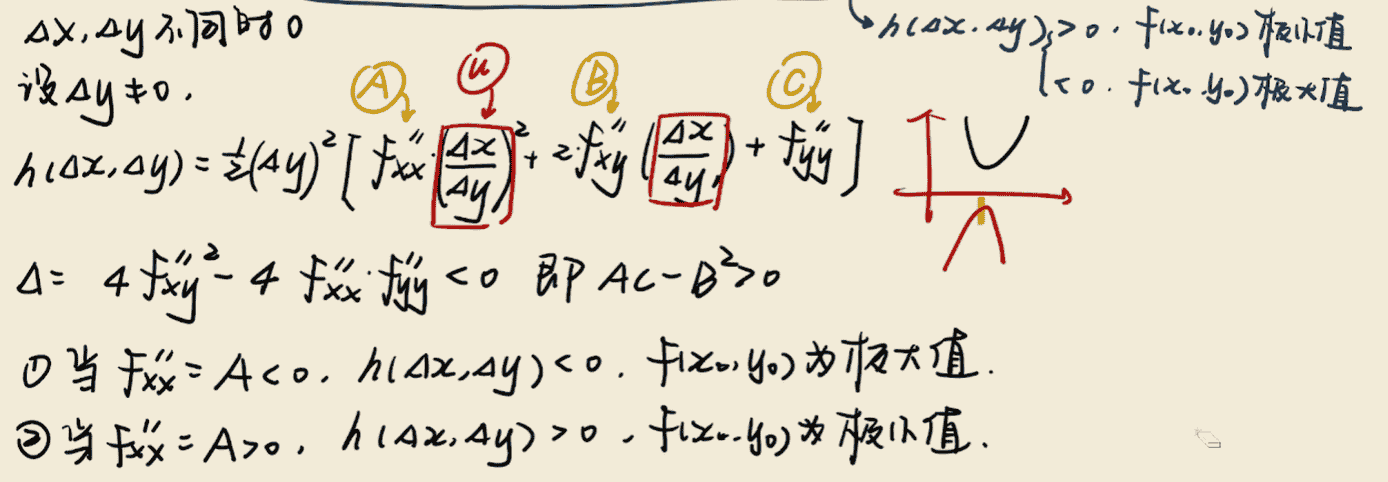 Δx,Δy不同时0
→h(Δx.Δy){>0. f(x₀,y₀)极小值
<0. f(x₀.y₀)极大值
设Δy≠0.
A u B C
h(Δx,Δy)=½(Δy)²[f″xx·(Δx/Δy)²+2·f″xy(Δx/Δy)+f″yy]
Δ= 4f″xy²-4 f″xx·f″yy<0 即AC-B²>0
①当f″xx=A<0. h(Δx,Δy)<0. f(x₀,y₀)为极大值.
②当f″xx=A>0. h(Δx,Δy)>0. f(x₀.y₀)为极小值.